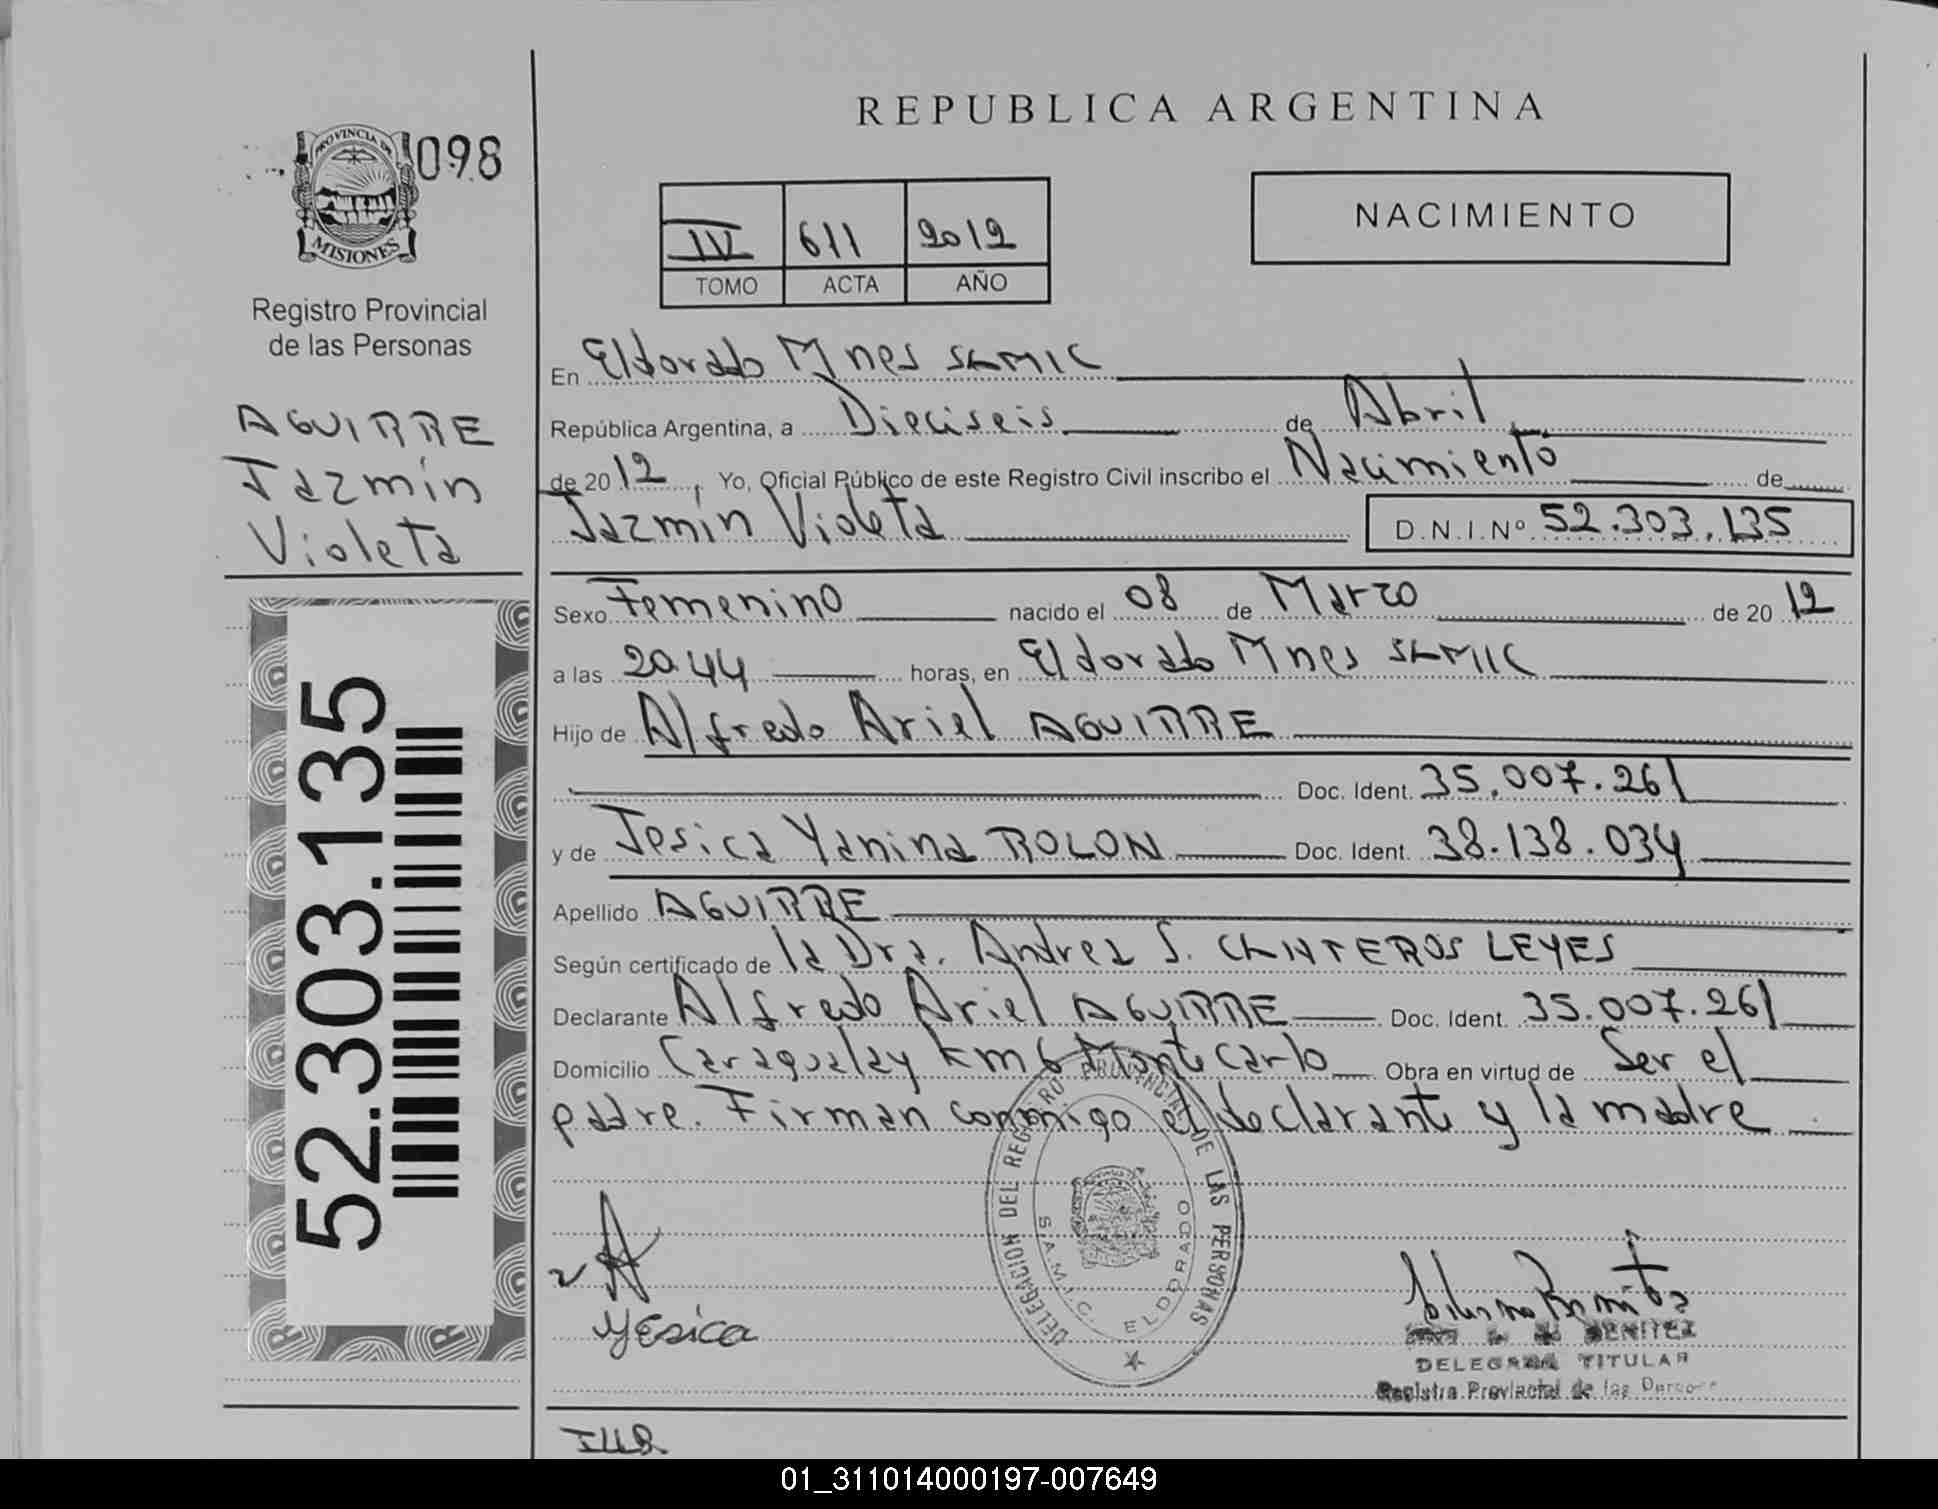 REPUBLICA ARGENTINA
PROVINCIA DE
MISIONES
098
Registro Provincial
de las Personas
AGUIRRE
Jazmín
Violeta
52.303.135
IV 611 2012
TOMO ACTA AÑO
NACIMIENTO
En Eldorado Mnes SAMIC
República Argentina, a Dieciseis de Abril
de 2012, Yo, Oficial Público de este Registro Civil inscribo el Nacimiento de
Jazmín Violeta D.N.I.Nº 52.303.135
Sexo Femenino nacido el 08 de Marzo de 2012
a las 20.44 horas, en Eldorado Mnes SAMIC
Hijo de Alfredo Ariel AGUIRRE
Doc. Ident. 35.007.261
y de Jesica Yanina ROLON Doc. Ident. 38.138.034
Apellido AGUIRRE
Según certificado de la Dra. Andrea S. CANTEROS LEYES
Declarante Alfredo Ariel AGUIRRE Doc. Ident. 35.007.261
Domicilio Caraguatay km 6 Monte Carlo Obra en virtud de Ser el
padre. Firman conmigo el declarante y la madre
DELEGACION DEL REGISTRO PROVINCIAL DE LAS PERSONAS
S.A.M.I.C. ELDORADO
Yesica
BENITEZ
DELEGADA TITULAR
Registro Provincial de las Personas
01_311014000197-007649